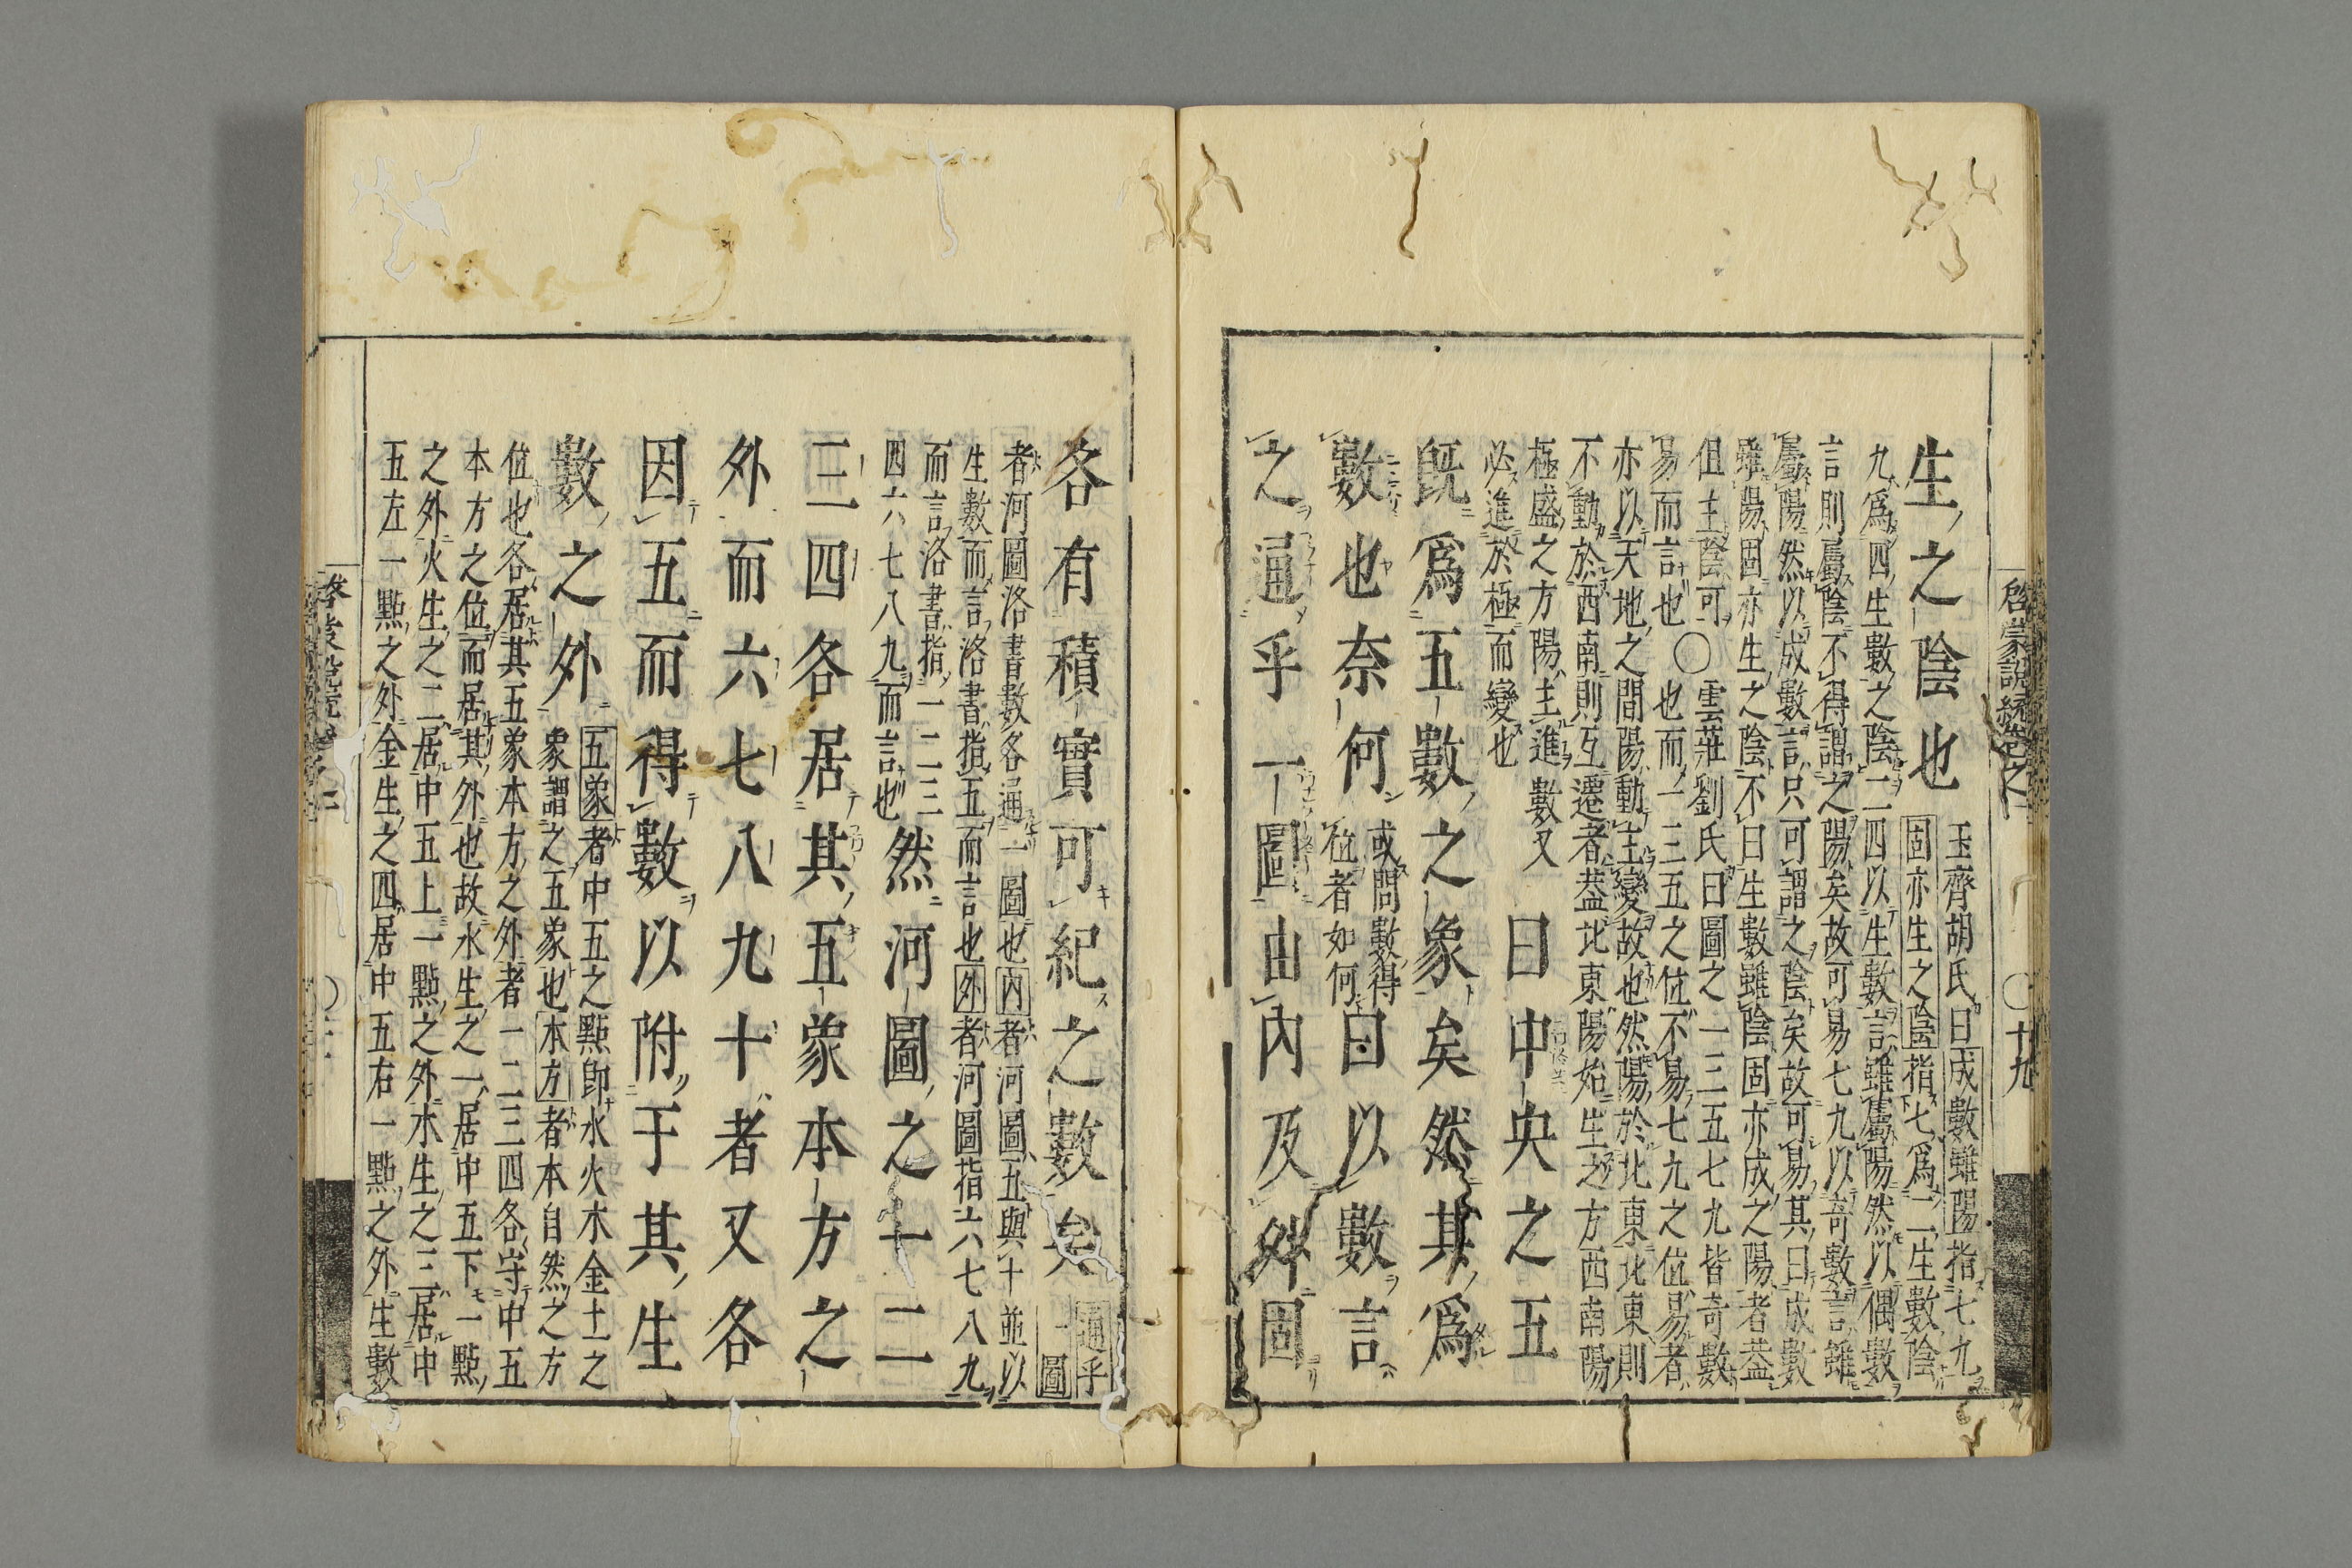 啓蒙說統卷之二 〇十九
生之陰也
玉齊胡氏曰成數雖陽指七九
固亦生之陰指七爲二生數陰
九爲四生數之陰二四以生數言雖屬陽然以偶數
言則屬陰不得謂之陽矣故可易七九以奇數言雖
屬陽然以成數言只可謂之陰矣故可易其曰成數
雖陽固亦生之陰不曰生數雖陰固亦成之陽者葢
但主陰可
易而言也
〇雲莊劉氏曰圖之一三五七九皆奇數
也而一三五之位不易七九之位易者
亦以天地之間陽動主變故也然陽於北東北東則
不動於西南則互遷者葢北東陽始生之方西南陽
極盛之方陽主進數又
必進於極而變也
曰中央之五
既爲五數之象矣然其爲
數也奈何
或問數得
位者如何
曰以數言
之通乎一圖由內及外固
各有積實可紀之數矣
通乎
一圖
者河圖洛書數各通一圖也內者河圖五與十並以
生數而言洛書指五而言也外者河圖指六七八九
而言洛書指一二三
四六七八九而言也
然河圖之一二
三四各居其五象本方之
外而六七八九十者又各
因五而得數以附于其生
數之外
五象者中五之點卽水火木金土之
象謂之五象也本方者本自然之方
位也各居其五象本方之外者一二三四各守中五
本方之位而居其外也故水生之一居中五下一點
之外火生之二居中五上一點之外木生之三居中
五左一點之外金生之四居中五右一點之外生數